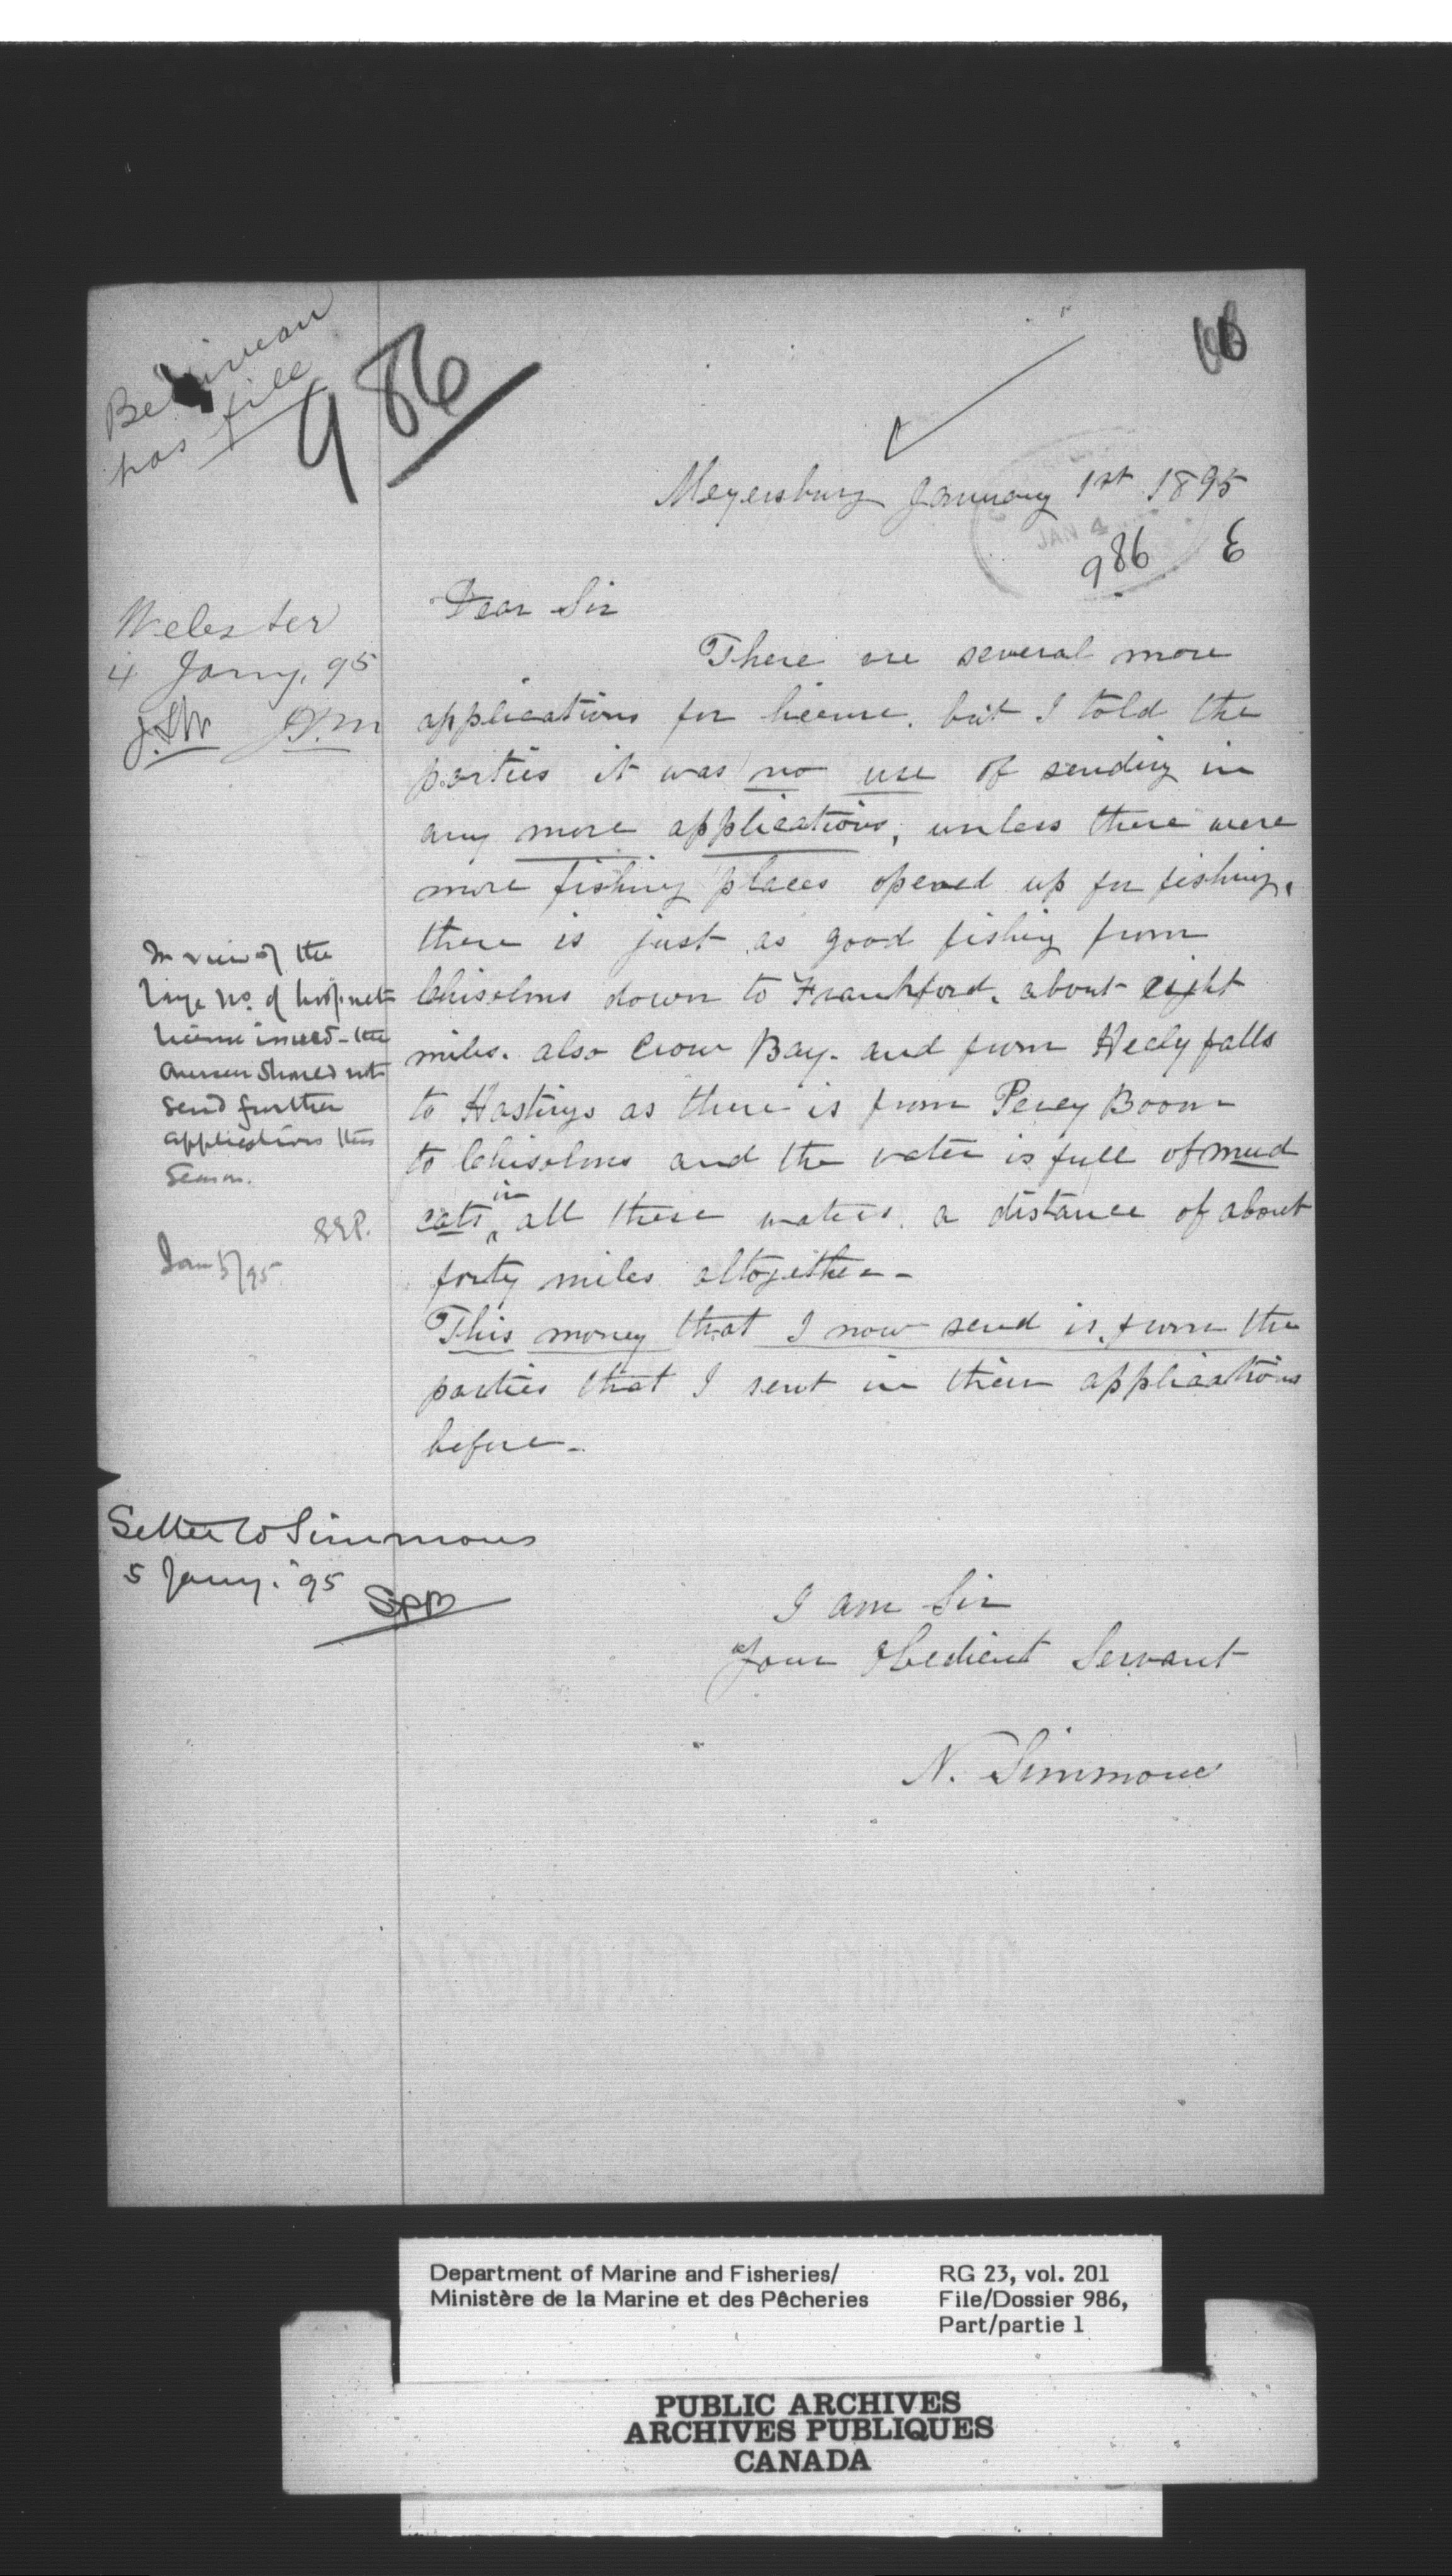 has file
986
Meyersburg January 1st 1895
JAN 4
986 E
Dear Sir
There are several more
applications for license. but I told the
parties it was no use of sending in
any more applications, unless there were
more fishing places opened up for fishing,
there is just as good fishing from
Chisolms down to Frankford. about eight
miles. also Crow Bay. and from Healy falls
to Hastings as there is from Percy Boom
to Chisolms and the water is full of mud
cats in all these waters. a distance of about
forty miles altogether-
This money that I now send is from the
parties that I sent in their applications
before-
I am Sir
Your Obedient Servant
N. Simmons
Webster
4 Jany, 95
In view of the
large no. of hoop net
license issued - the
should not
send further
applications this
Season.
Jan 5/95
Letter to Simmons
5 Jany. 95
Department of Marine and Fisheries/
Ministère de la Marine et des Pêcheries
RG 23, vol. 201
File/Dossier 986,
Part/partie 1
PUBLIC ARCHIVES
ARCHIVES PUBLIQUES
CANADA